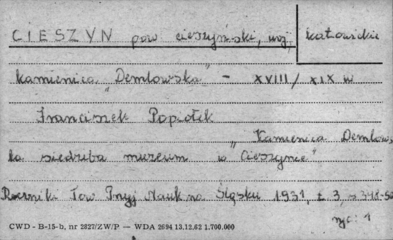 CIESZYN pow cieszyński, woj. katowickie
kamienica "Demlowska" - XVIII / XIX w
Franciszek Popiołek
"Kamienica Demlows-
ka siedziba muzeum w Cieszynie"
Roczniki Tow Przyj Nauk na Śląsku 1931, t 3, s
ryc. 1
CWD - B-15-b, nr 2627/ZW/P — WDA 2694 13.12.62 1.700.000